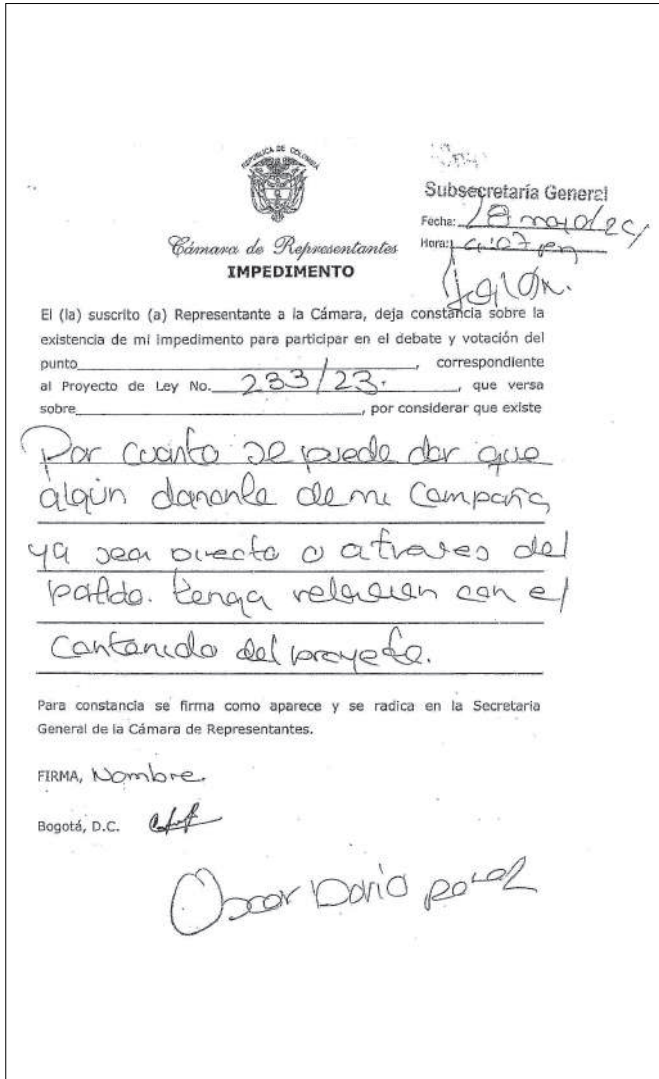 REPUBLICA DE COLOMBIA
Subsecretaría General
Fecha: 28 mayo/24
Hora: 4:07 pm
Cámara de Representantes
IMPEDIMENTO
El (la) suscrito (a) Representante a la Cámara, deja constancia sobre la
existencia de mi impedimento para participar en el debate y votación del
punto____________, correspondiente
al Proyecto de Ley No. 233/23. , que versa
sobre____________, por considerar que existe
Por cuanto se puede dar que
algún donante de mi Campaña
ya sea directo o a traves del
partido. tenga relacion con el
Contenido del proyecto.
Para constancia se firma como aparece y se radica en la Secretaria
General de la Cámara de Representantes.
FIRMA, Nombre.
Bogotá, D.C.
Oscar Dario Perez